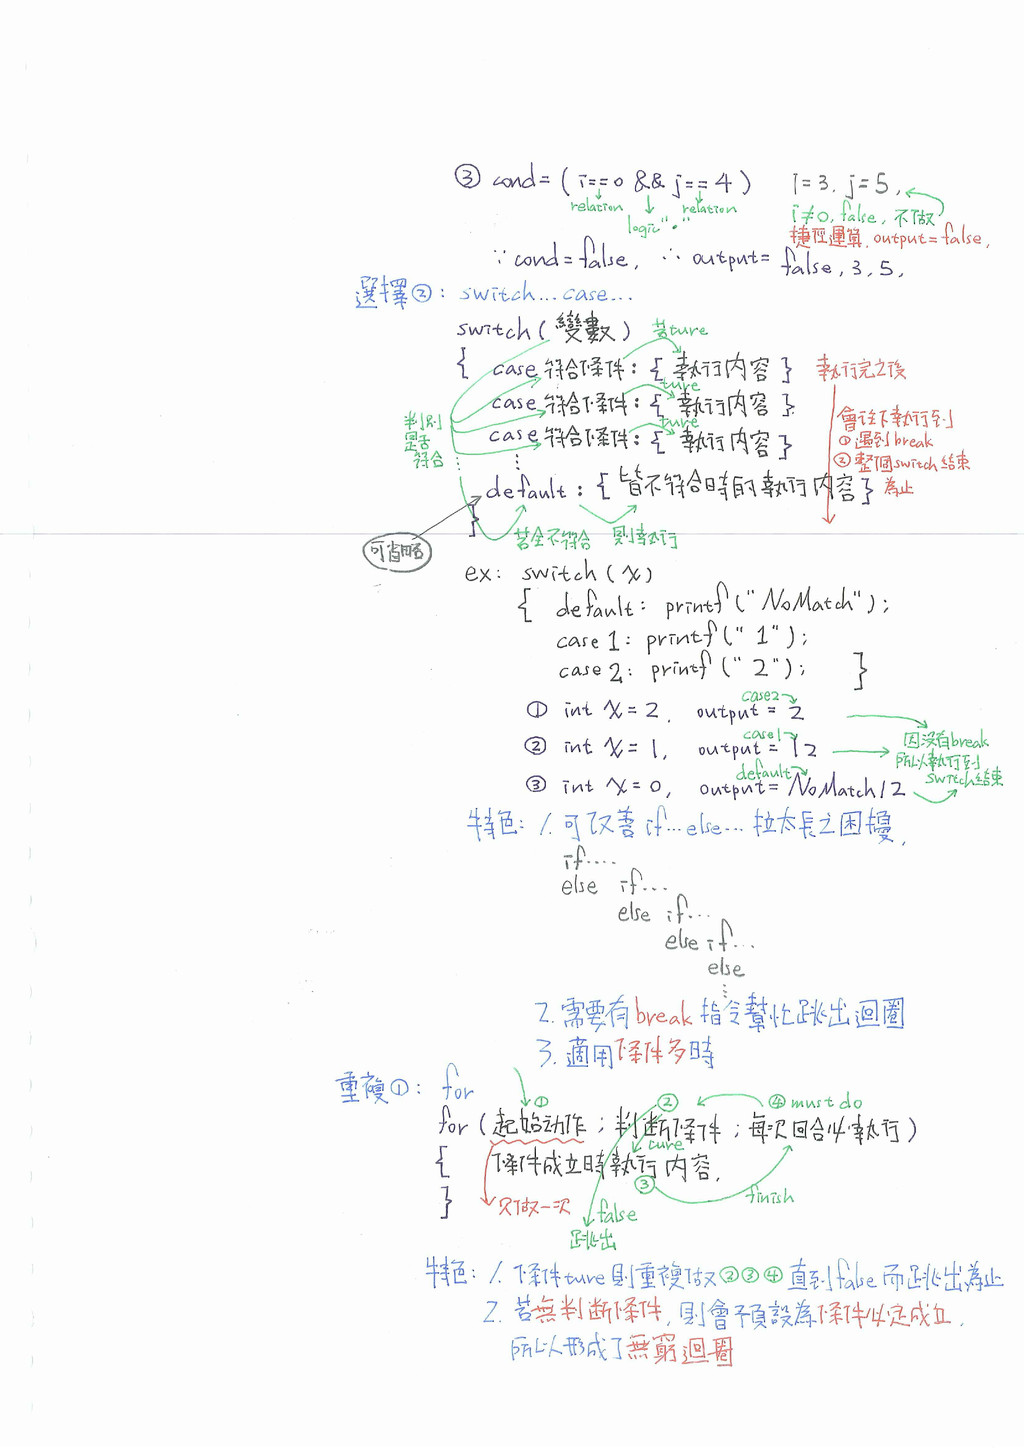 ③ cond = ( i==0 && j==4 )    i=3, j=5,
relation    relation    i≠0, false, 不做
logic "·"    捷徑運算, output=false,
∵ cond = false, ∴ output = false, 3, 5,
選擇②: switch...case...
switch ( 變數 )    若ture
{ case 符合條件: { 執行內容 }    執行完之後
ture
case 符合條件: { 執行內容 }    會往下執行到
ture
判別是否符合    case 符合條件: { 執行內容 }    ①遇到break
⋮    ⋮    ②整個switch結束
default: { 皆不符合時的執行內容 }    為止
}
可省略    若全不符合    則執行
ex: switch (x)
{ default: printf("NoMatch");
case 1: printf("1");
case 2: printf("2"); }
case2
① int x=2, output = 2
case1    因沒有break
② int x=1, output = 12    所以執行到
default    switch結束
③ int x=0, output= NoMatch12
特色: 1. 可改善if...else...拉太長之困擾,
if....
else if...
else if...
else if...
else
⋮
2. 需要有break指令幫忙跳出迴圈
3. 適用條件多時
重複①: for
①    ②    ④ must do
for (起始动作; 判斷條件; 每次回合必執行)
ture
{ 條件成立時執行內容,
③
} 只做一次    false    finish
跳出
特色: 1. 條件ture則重複做②③④直到false而跳出為止
2. 若無判斷條件, 則會預設為條件必定成立,
所以形成了無窮迴圈